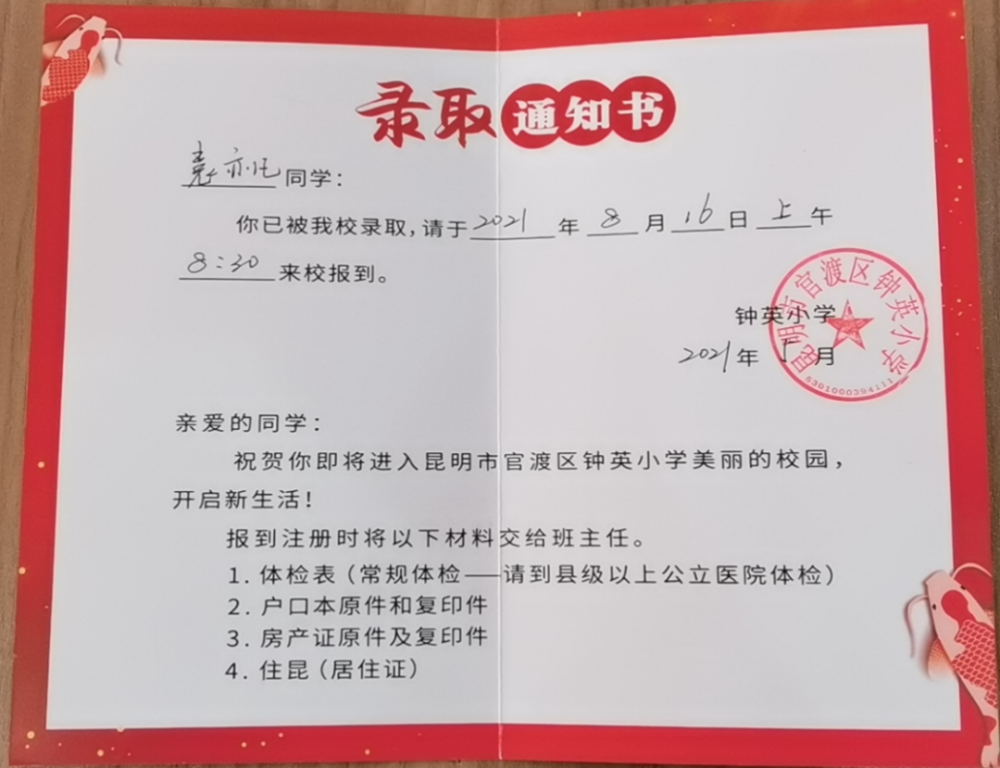 录取通知书
袁亦凡同学：
你已被我校录取，请于2021年8月16日上午
8:30来校报到。
钟英小学
2021年5月
昆明市官渡区钟英小学
亲爱的同学：
祝贺你即将进入昆明市官渡区钟英小学美丽的校园，
开启新生活！
报到注册时将以下材料交给班主任。
1. 体检表（常规体检——请到县级以上公立医院体检）
2. 户口本原件和复印件
3. 房产证原件及复印件
4. 住昆（居住证）